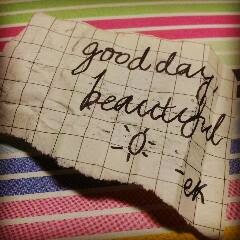 good day,
beautiful
-ek